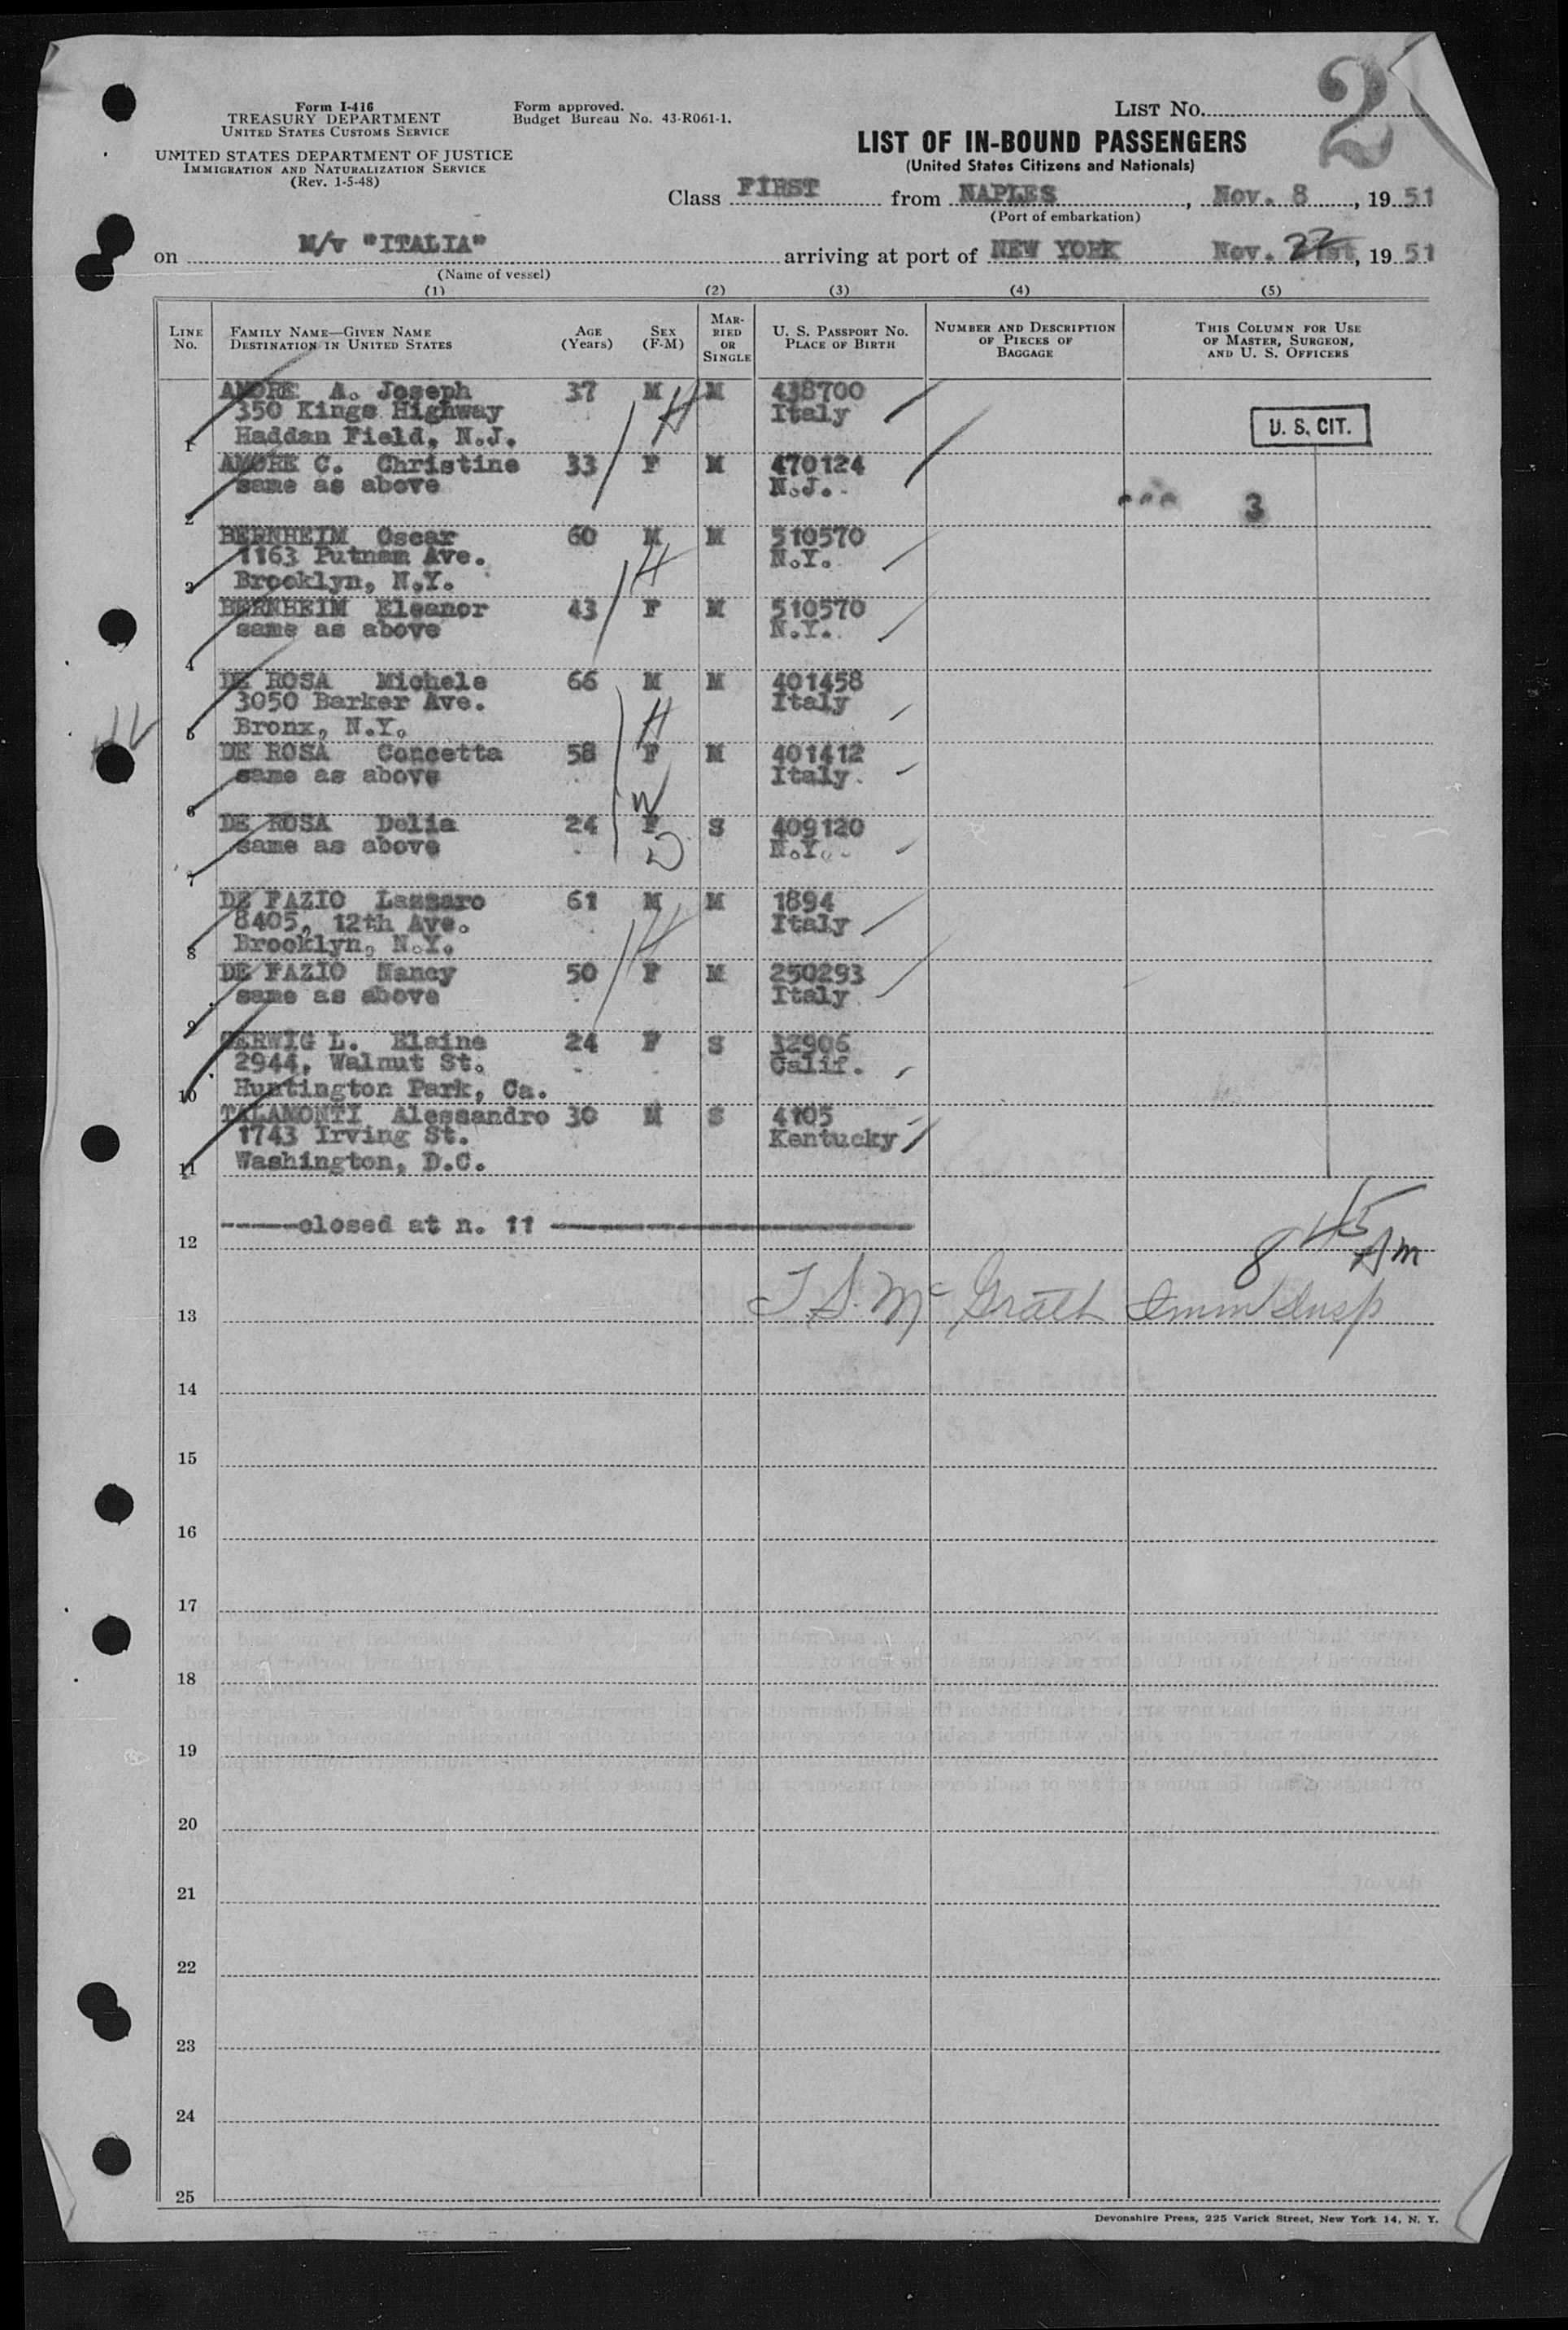 Form I-416
TREASURY DEPARTMENT
UNITED STATES CUSTOMS SERVICE
UNITED STATES DEPARTMENT OF JUSTICE
IMMIGRATION AND NATURALIZATION SERVICE
(Rev. 1-5-48)
Form approved.
Budget Bureau No. 43-R061-1.
LIST NO. 2
LIST OF IN-BOUND PASSENGERS
(United States Citizens and Nationals)
Class FIRST from NAPLES, Nov. 8, 1951
(Port of embarkation)
on M/v "ITALIA" arriving at port of NEW YORK Nov. 22, 1951
(Name of vessel)
(1) (2) (3) (4) (5)
LINE NO.
FAMILY NAME—GIVEN NAME
DESTINATION IN UNITED STATES
AGE (Years)
SEX (F-M)
MARRIED OR SINGLE
U. S. PASSPORT NO.
PLACE OF BIRTH
NUMBER AND DESCRIPTION OF PIECES OF BAGGAGE
THIS COLUMN FOR USE OF MASTER, SURGEON, AND U. S. OFFICERS
AMORE A. Joseph 37 M M 438700
350 Kings Highway Italy
U. S. CIT.
1 Haddan Field, N.J.
H
AMORE C. Christine 33 F M 470124
same as above N.J.
2
3
BERNHEIM Oscar 60 M M 510570
1163 Putnam Ave. N.Y.
3 Brooklyn, N.Y.
H
BERNHEIM Eleanor 43 F M 510570
same as above N.Y.
4
DE ROSA Michele 66 M M 401458
3050 Barker Ave. Italy
5 Bronx, N.Y.
H
DE ROSA Concetta 58 F M 401412
same as above Italy
6
W
DE ROSA Delia 24 F S 409120
same as above N.Y.
D
7
DE FAZIO Lazzaro 61 M M 1894
8405, 12th Ave. Italy
8 Brooklyn, N.Y.
H
DE FAZIO Nancy 50 F M 250293
same as above Italy
9
GERWIG L. Elaine 24 F S 32906
2944, Walnut St. Calif.
10 Huntington Park, Ca.
TALAMONTI Alessandro 30 M S 4105
1743 Irving St. Kentucky
11 Washington, D.C.
closed at n. 11
12
8 45 Am
13 T. S. McGrath Imm Insp
14
15
16
17
18
19
20
21
22
23
24
25
Devonshire Press, 225 Varick Street, New York 14, N. Y.